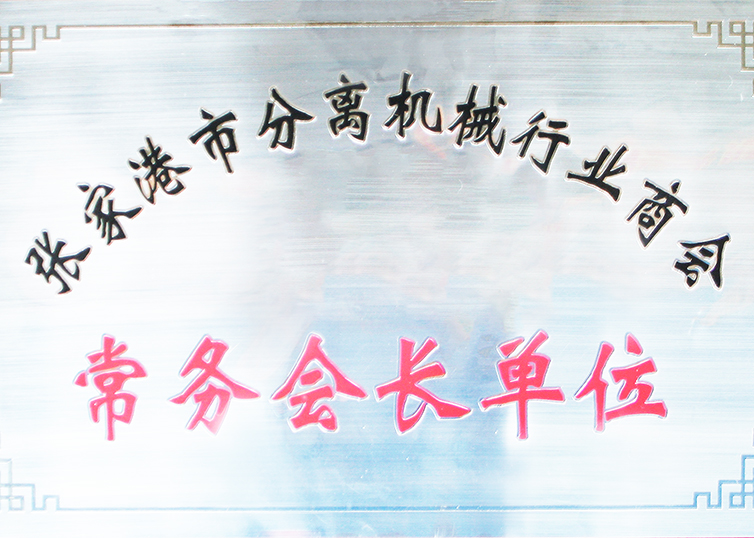 张家港市分离机械行业商会
常务会长单位